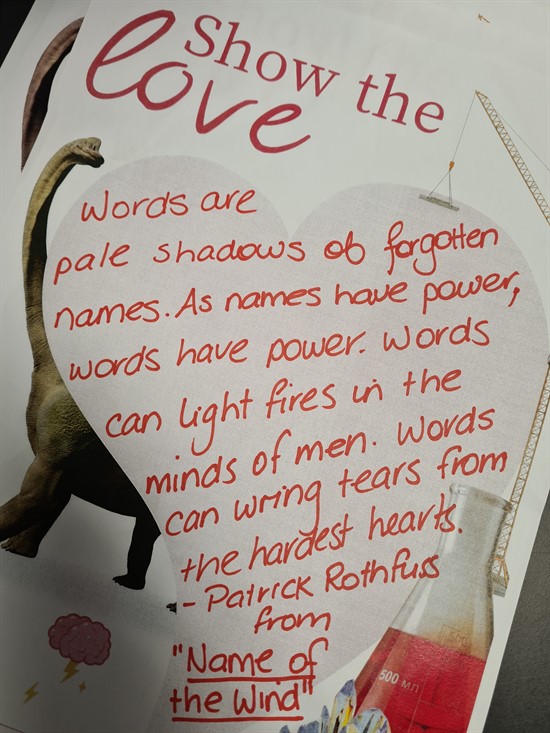 Show the
love
Words are
pale shadows of forgotten
names. As names have power,
words have power. Words
can light fires in the
minds of men. Words
can wring tears from
the hardest hearts.
- Patrick Rothfuss
from
"Name of
the Wind"
500 мл